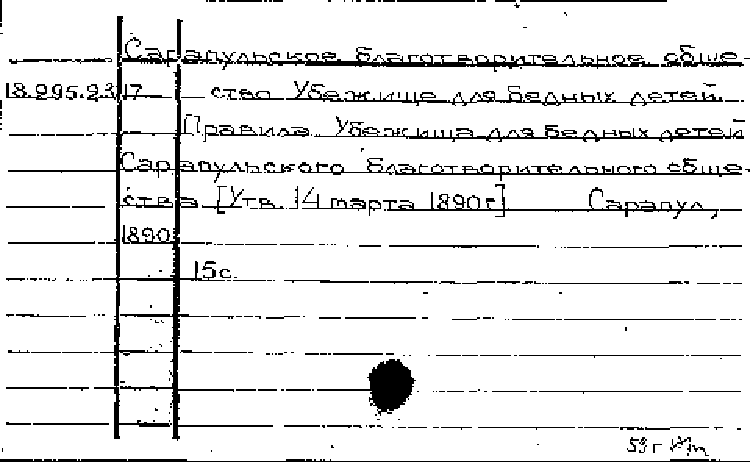 Сарапульское благотворительное обще-
18.295.2.317 ство Убежище для бедных детей.
Правила Убежища для бедных детей
Сарапульского благотворительного обще-
ства [Утв. 14 марта 1890 г.] Сарапул,
1890
15 с.
59 г